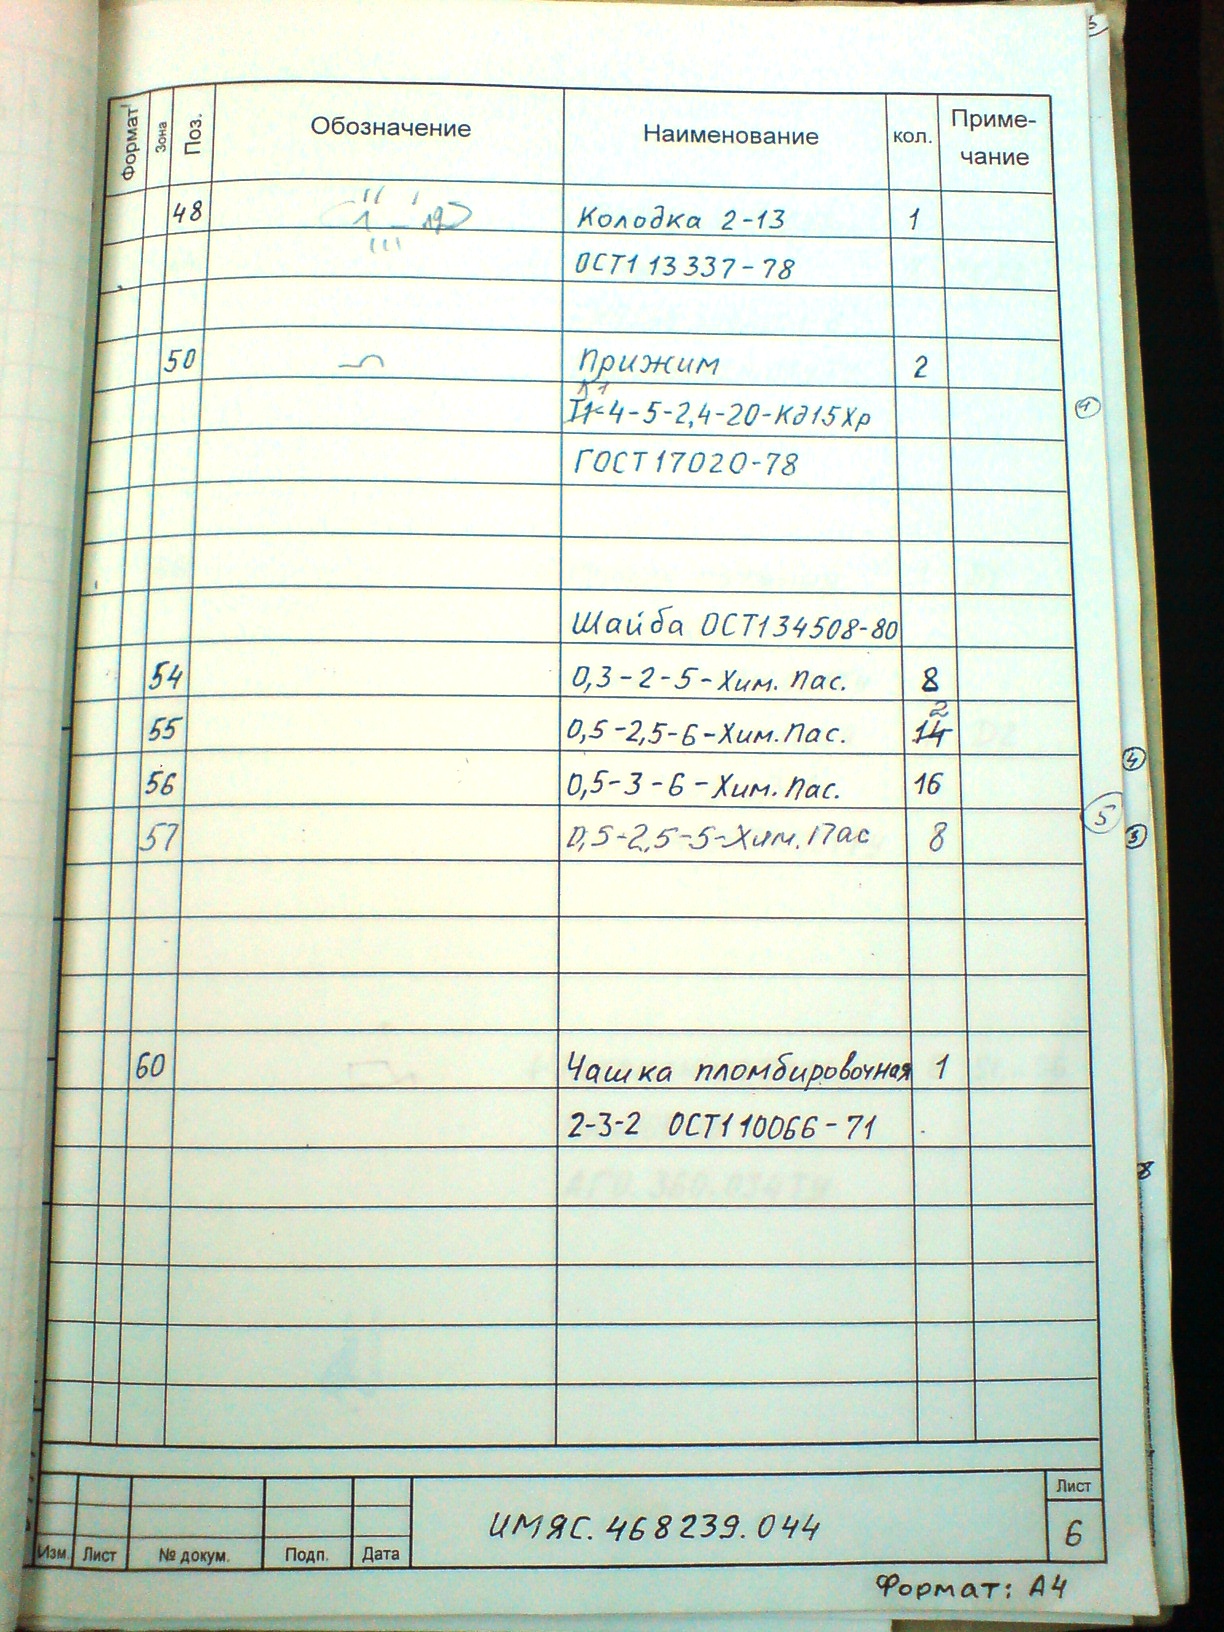 Формат Зона Поз. Обозначение Наименование кол. Приме-
чание
48 Колодка 2-13 1
ОСТ1 13337-78
50 Прижим 2
4-5-2,4-20-Кд15Хр
ГОСТ 17020-78
Шайба ОСТ1 34508-80
54 0,3-2-5-Хим. Пас. 8
2
55 0,5-2,5-6-Хим. Пас. 14
4
56 0,5-3-6-Хим. Пас. 16
5
57 0,5-2,5-5-Хим. Пас 8
60 Чашка пломбировочная 1
2-3-2 ОСТ1 10066-71
8
Лист
ИМЯС.468239.044
6
Изм. Лист № докум. Подп. Дата
Формат: А4